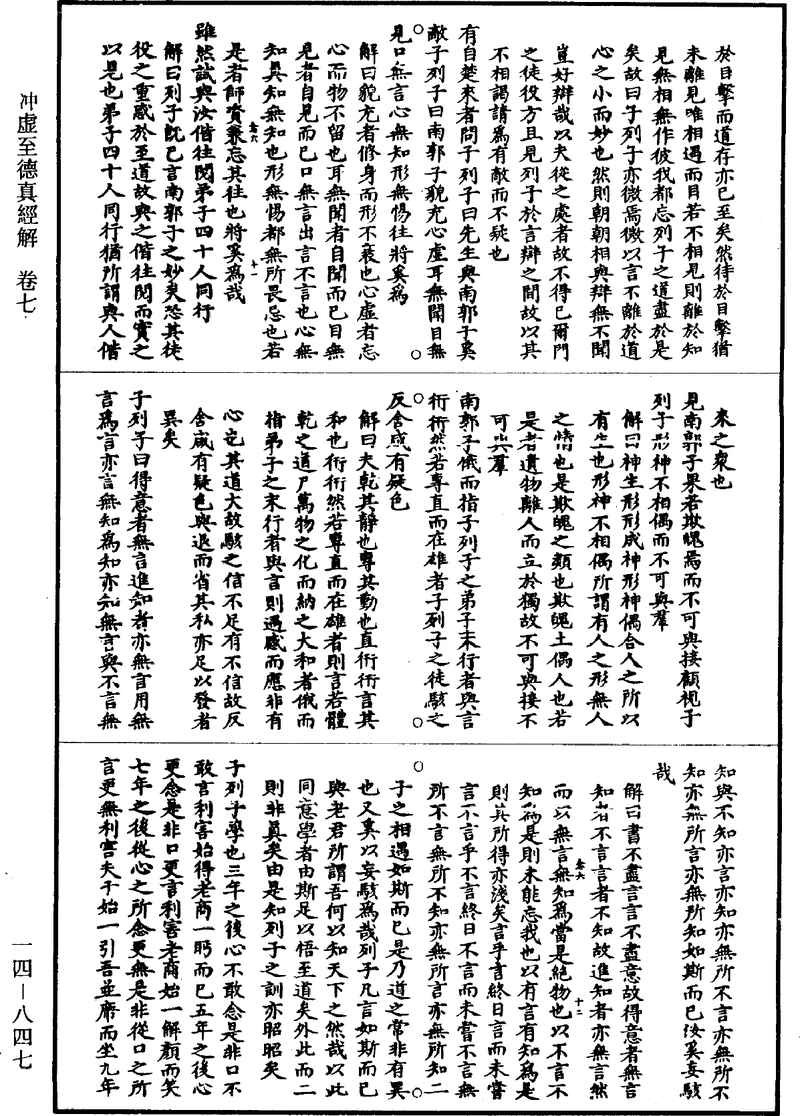 冲虛至德真經解 卷七
一四—八四七
於目擊而道存亦已至矣然待於目擊猶
未離見唯相遇而目若不相見則離於知
見無相無作彼我都忘列子之道盡於是
矣故曰子列子亦微焉微以言不離於道
心之小而妙也然則朝朝相與辯無不聞
豈好辯哉以夫從之處者故不得已爾門
之徒役方且見列子於言辯之間故以其
不相謁請為有敵而不疑也
有自楚來者問子列子曰先生與南郭子奚
敵子列子曰南郭子貌充心虛耳無聞目無
見口無言心無知形無惕往將奚為
解曰貌充者修身而形不衰也心虛者忘
心而物不留也耳無聞者自聞而已目無
見者自見而已口無言出言不言也心無
知真知無知也形無惕都無所畏忌也若
是者師資兼忘其往也將奚為哉
卷六
十一
雖然試與汝偕往閱弟子四十人同行
解曰列子既已言南郭子之妙矣恐其徒
役之重惑於至道故與之偕往閱而實之
以見也弟子四十人同行猶所謂與人偕
來之衆也
見南郭子果若欺魄焉而不可與接顧視子
列子形神不相偶而不可與羣
解曰神生形形成神形神偶合人之所以
有生也形神不相偶所謂有人之形無人
之情也是欺魄之類也欺魄土偶人也若
是者遺物離人而立於獨故不可與接不
可與羣
南郭子俄而指子列子之弟子末行者與言
衎衎然若專直而在雄者子列子之徒駭之
反舍咸有疑色
解曰夫乾其靜也專其動也直衎衎言其
和也衎衎然若專直而在雄者則言若體
乾之道尸萬物之化而納之大和者俄而
指弟子之末行者與言則遇感而應非有
心定其道大故駭之信不足有不信故反
舍咸有疑色與退而省其私亦足以發者
異矣
子列子曰得意者無言進知者亦無言用無
言為言亦言無知為知亦知無言與不言無
知與不知亦言亦知亦無所不言亦無所不
知亦無所言亦無所知如斯而已汝奚妄駭
哉
解曰書不盡言言不盡意故得意者無言
知者不言言者不知故進知者亦無言然
卷六
十二
而以無言無知為當是絕物也以不言不
知為是則未能忘我也以有言有知為是
則其所得亦淺矣言乎言終日言而未嘗
言不言乎不言終日不言而未嘗不言無
所不言無所不知亦無所言亦無所知二
子之相遇如斯而已是乃道之常非有異
也又奚以妄駭為哉列子凡言如斯而已
與老君所謂吾何以知天下之然哉以此
同意學者由斯足以悟至道矣外此而二
則非真矣由是知列子之訓亦昭昭矣
子列子學也三年之後心不敢念是非口不
敢言利害始得老商一眄而已五年之後心
更念是非口更言利害老商始一解顏而笑
七年之後從心之所念更無是非從口之所
言更無利害夫子始一引吾並席而坐九年